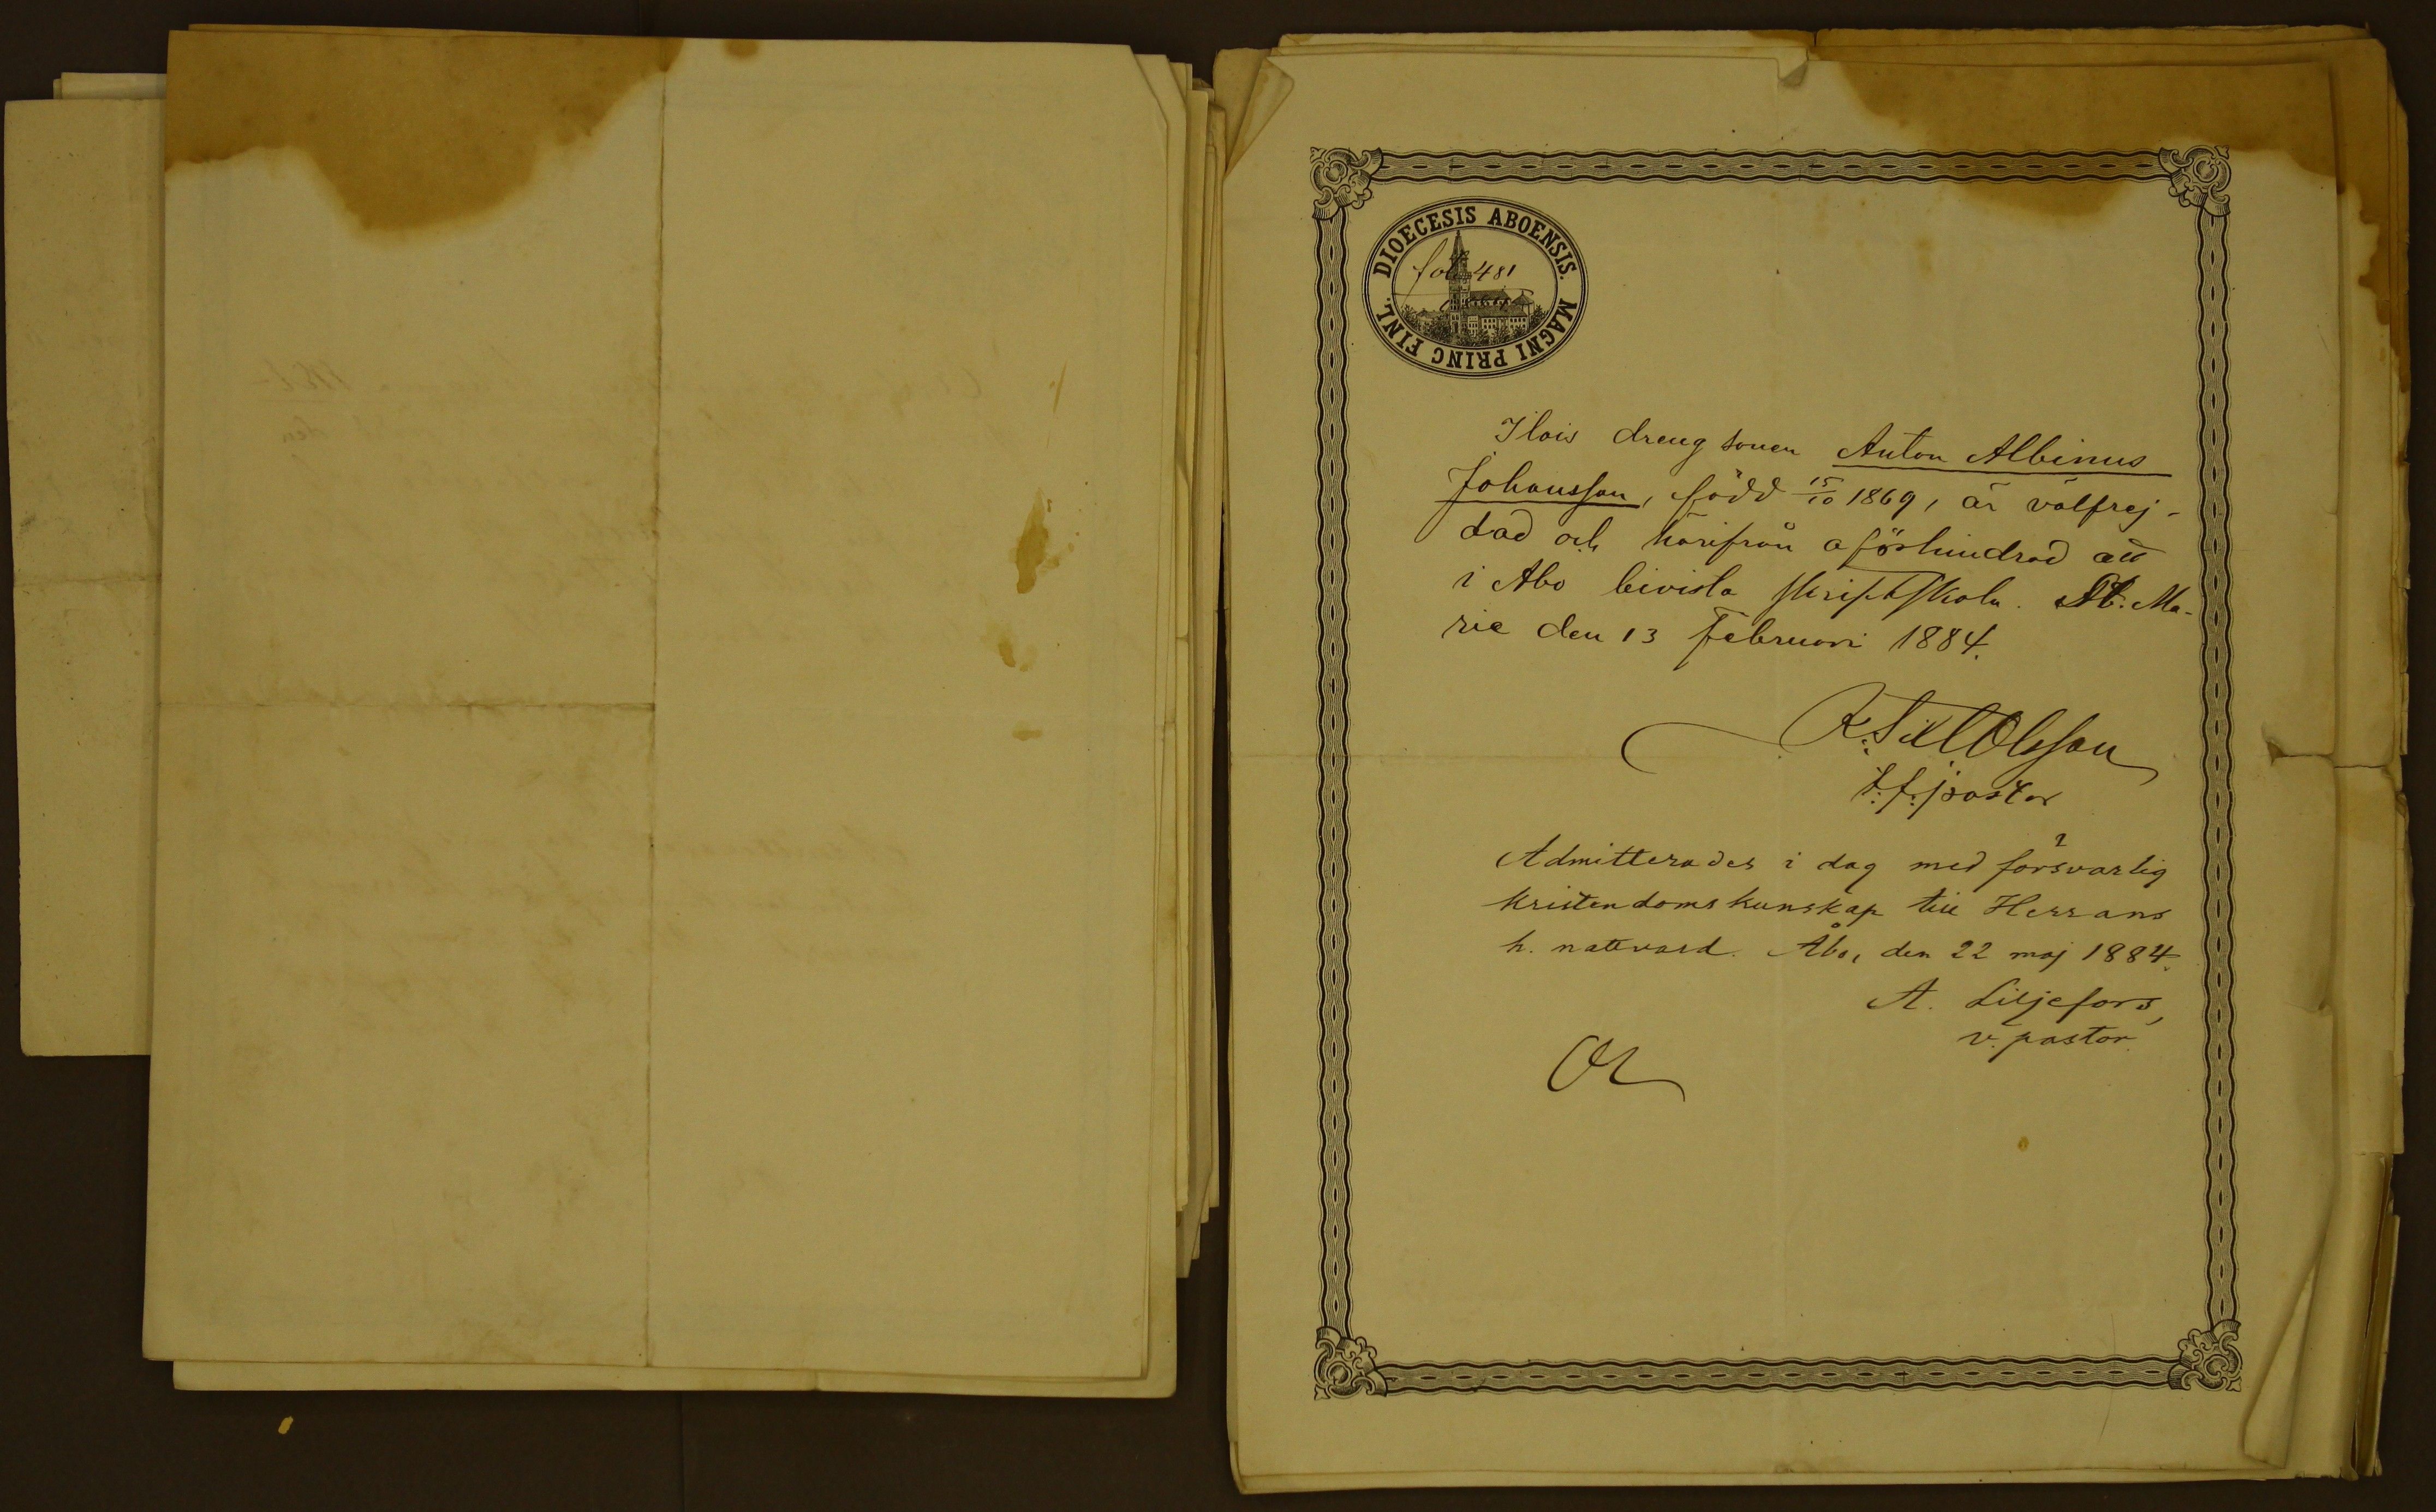 DIOECESIS ABOENSIS. MAGNI PRINC FINL.
fol. 481
Ilois dreng sonen Anton Albinus
Johansson, född 15/10 1869, är välfrej-
dad och härifrån oförhindrad att
i Åbo bivista skriftskola. St. Ma-
rie den 13 Februari 1884.
Olsson
t. f. pastor
Admitterades i dag med försvarlig
kristendomskunskap till Herrans
h. nattvard. Åbo, den 22 maj 1884.
A. Liljefors,
v. pastor.